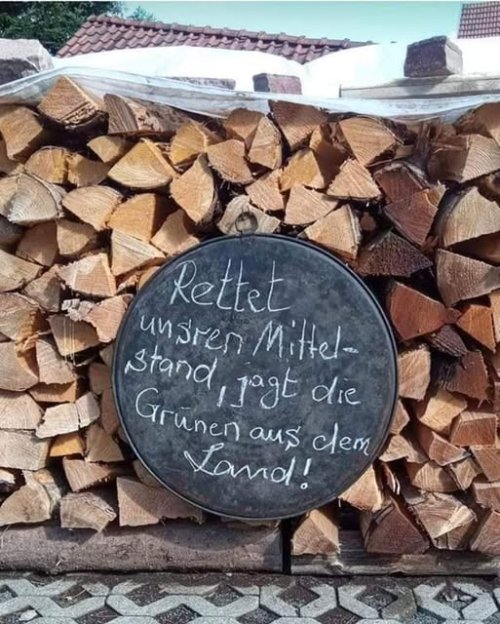 Rettet
unsren Mittel-
stand, jagt die
Grünen aus dem
Land!